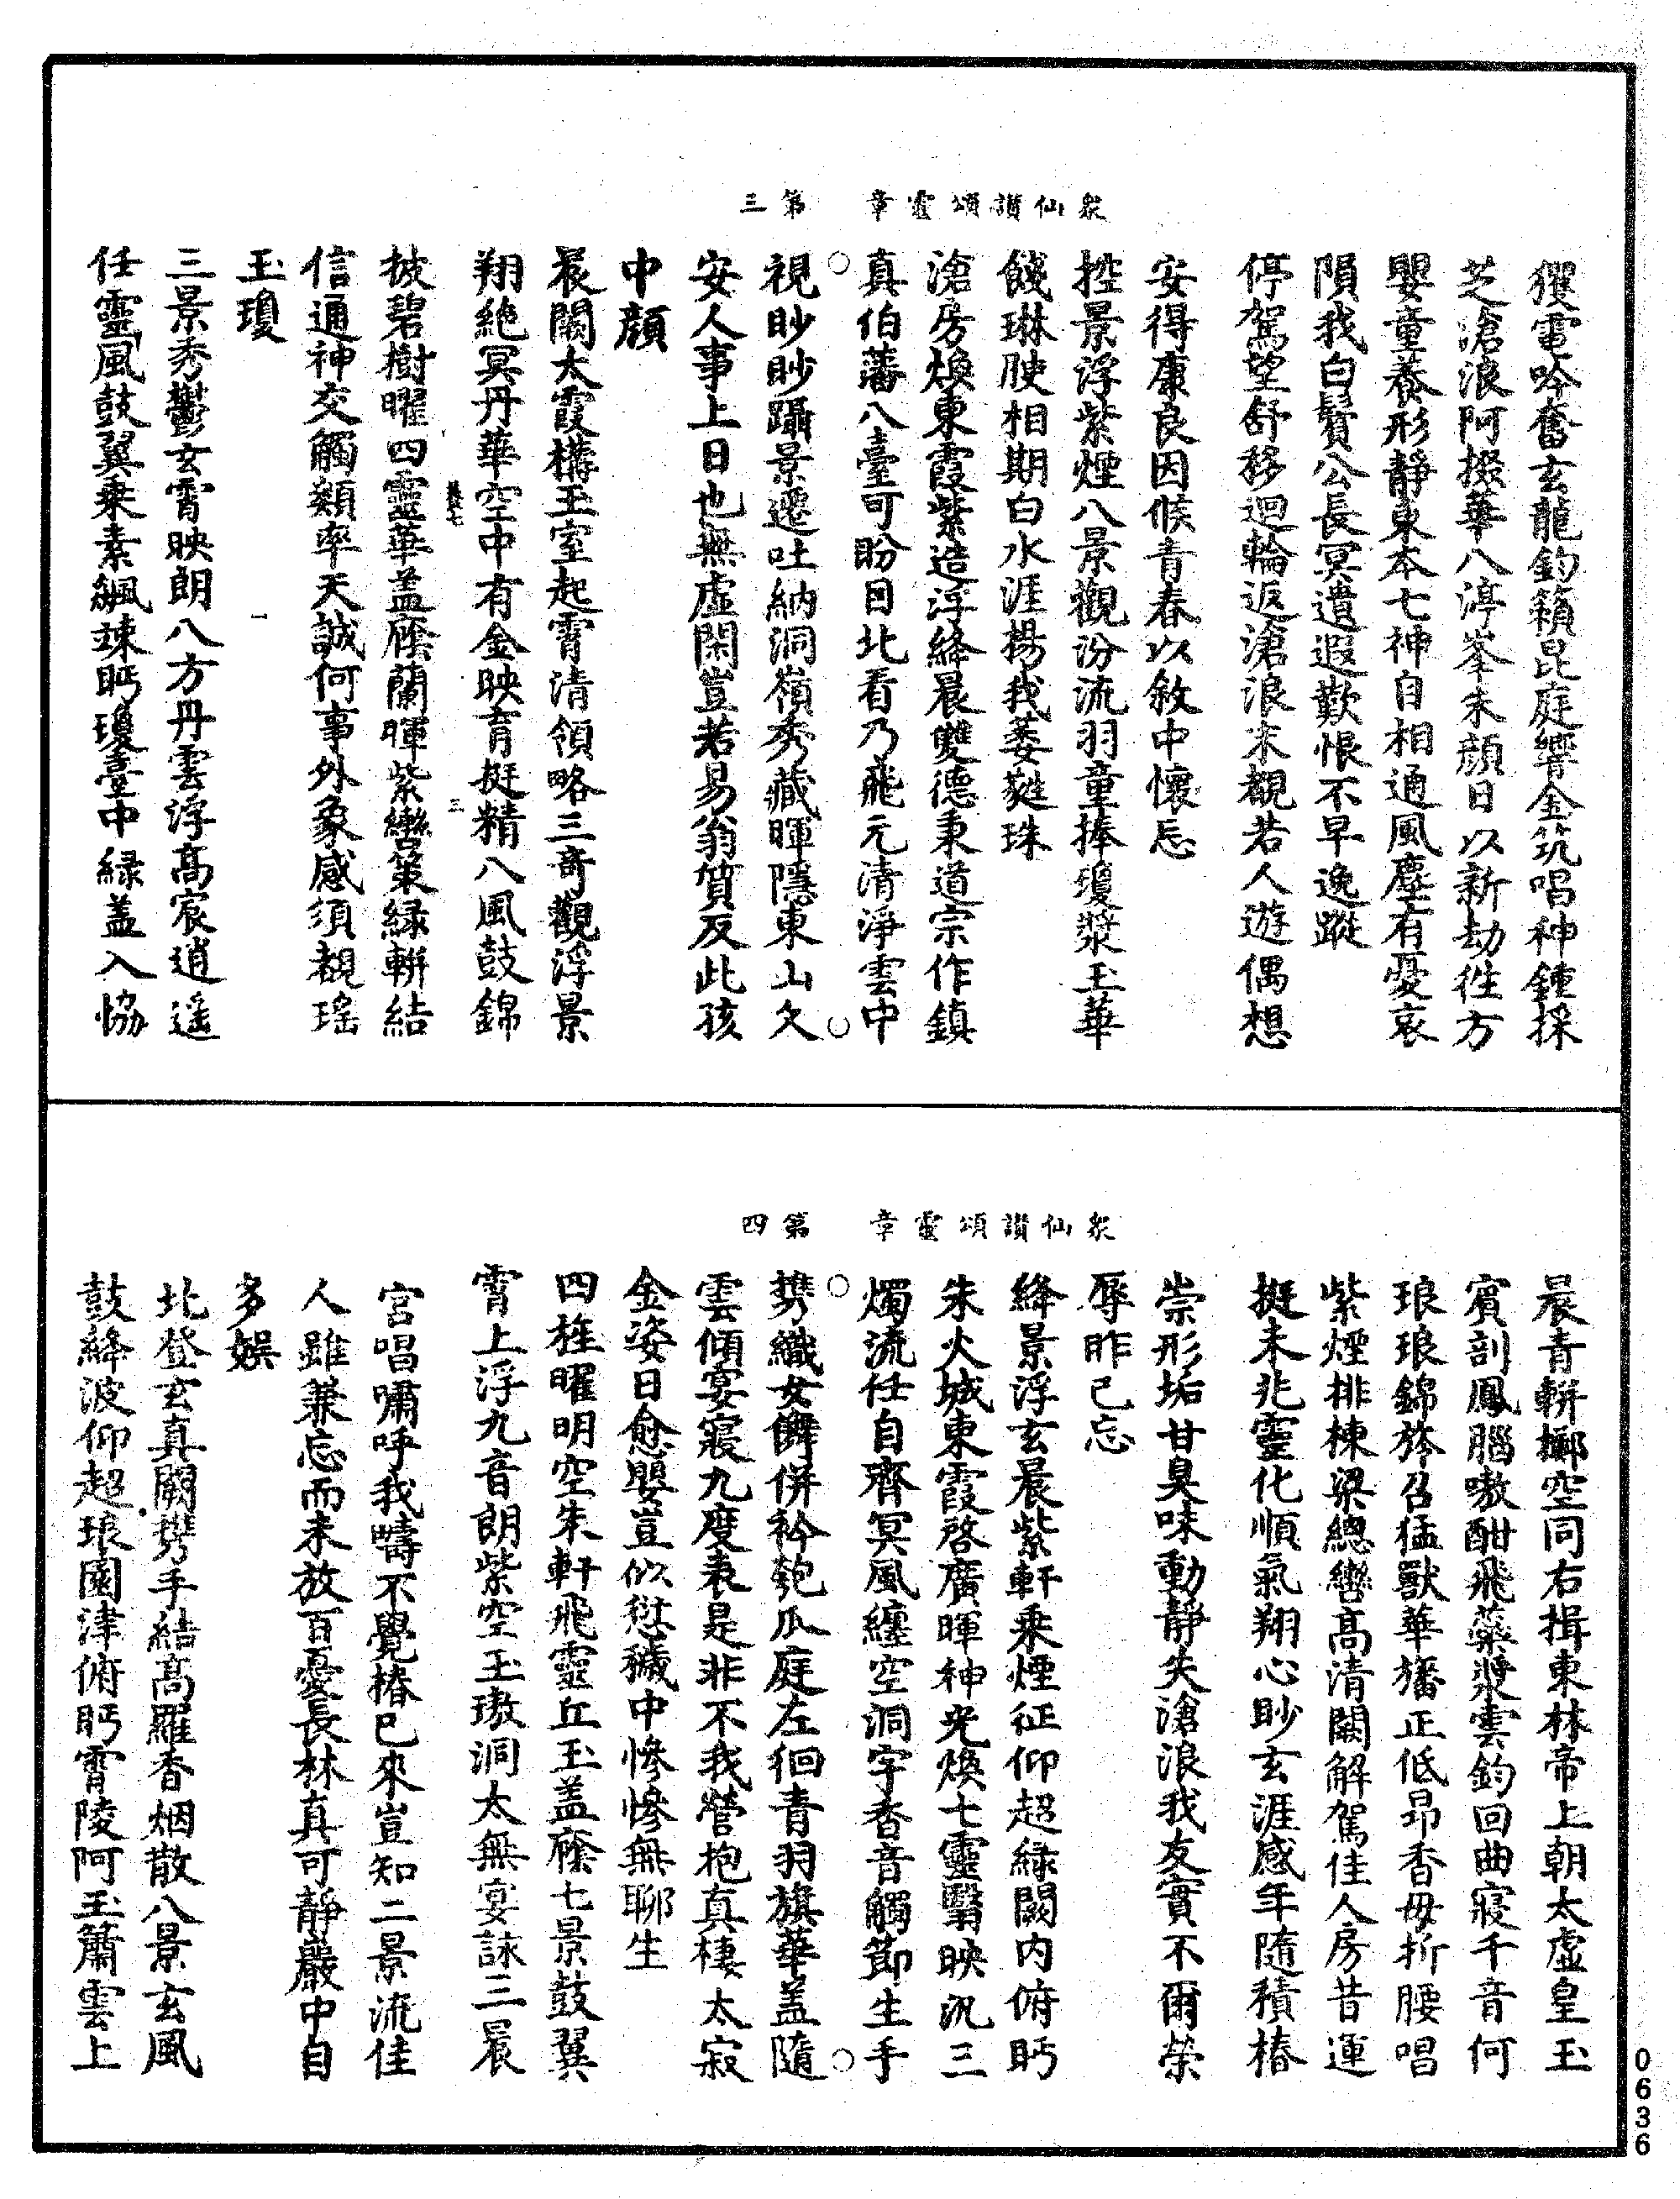 衆仙讃頌靈章　第三
玃電吟奮玄龍鈞籟昆庭響金筑唱神鍾採
芝滄浪阿掇華八渟峯朱顔日以新劫徃方
嬰童養形靜東本七神自相通風塵有憂哀
隕我白鬢公長冥遺遐歎恨不早逸蹤
停駕望舒移迴輪返滄浪未覩若人遊偶想
安得康良因俟青春以敘中懷忘
控景浮紫煙八景觀汾流羽童捧瓊漿玉華
餞琳腴相期白水涯楊我萎蕤珠
滄房煥東霞紫造浮絳晨雙德秉道宗作鎮
真伯藩八臺可盼目北看乃飛元清淨雲中
視眇眇躡景遷吐納洞嶺秀藏暉隱東山久
安人事上日也無虛閑豈若易翁質反此孩
中顔
晨闕太霞構玉室起霄清領略三奇觀浮景
翔絶冥丹華空中有金映育挺精八風鼓錦
披碧樹曜四靈華盖廕蘭暉紫轡策緑軿結
信通神交觸纇率天誠何事外象感須覩瑤
玉瓊
三景秀鬱玄霄映朗八方丹雲浮髙宸逍遥
任靈風鼓翼乗素飈竦眄瓊臺中緑盖入恊
衆仙讃頌靈章　第四
晨青軿擲空同右揖東林帝上朝太虛皇玉
賓剖鳳腦嗷酣飛蘂漿雲鈞回曲寢千音何
琅琅錦旍召猛獸華旛正低昂香母折腰唱
紫煙排棟梁總轡高清闕解駕佳人房昔運
挺未兆靈化順氣翔心眇玄涯感年隨積椿
崇形垢甘臭味動靜失滄浪我友實不爾榮
辱昨已忘
絳景浮玄晨紫軒乗煙征仰超緑闕内俯眄
朱火城東霞啓廣暉神光煥七靈翳映汎三
燭流任自齊冥風纏空洞字香音觸節生手
㩗織女儛併衿匏瓜庭左徊青羽旗華盖隨
雲傾宴寢九度表是非不我營抱真棲太寂
金姿日愈嬰豈似愆穢中慘慘無聊生
四旌曜明空朱軒飛靈丘玉盖廕七景鼓翼
霄上浮九音朗紫空玉璈洞太無宴詠三晨
宮唱嘯呼我疇不覺椿已來豈知二景流佳
人雖兼忘而未放百憂長林真可靜巖中自
多娛
北登玄真闕㩗手結髙羅香烟散八景玄風
鼓絳波仰超琅園津俯眄霄陵阿玉簫雲上
0636